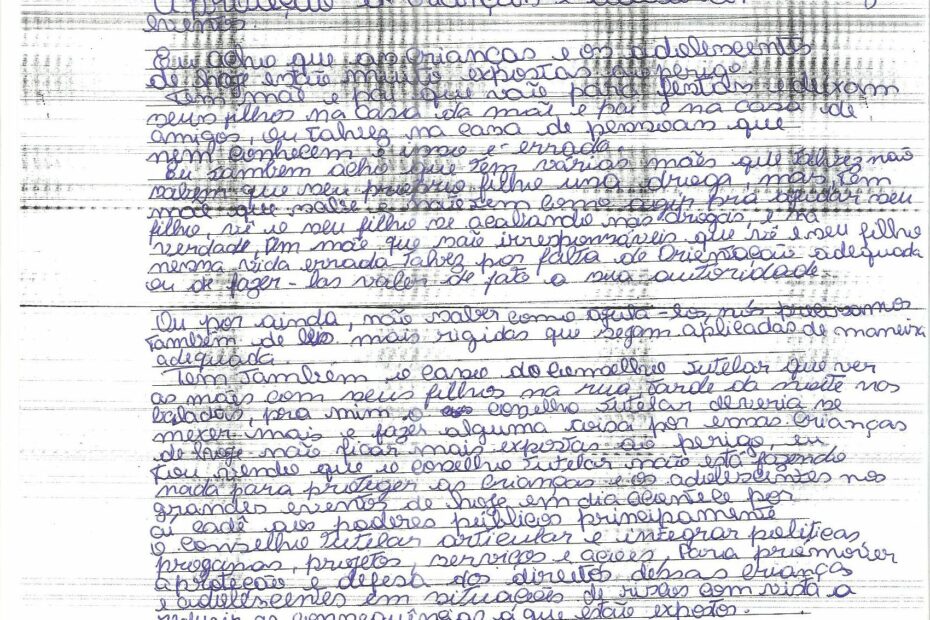 A proteção de crianças e adolescentes
eventos.
Eu acho que as crianças e os adolescentes
de hoje estão muito expostas ao perigo.
Tem mãe e pai que vão para festas e deixam
seus filhos na casa da mãe e pai e na casa de
amigos, ou talvez na casa de pessoas que
nem conhecem e isso é errada.
Eu também acho que tem várias mães que talvez não
sabem que seu próprio filho usa droga, mas tem
mãe que sabe e não tem como agir pra ajudar seu
filho, vê o seu filho se acabando nas drogas, e na
verdade, tem mãe que são irresponsáveis que vê e seu filho
nessa vida errada talvez por falta de Orientação adequada
ou de fazer-las valer de fato a sua autoridade.
Ou por ainda, não saber como ajuda-los nós precisamos
também de leis mais rigidas que sejam aplicadas de maneira
adequada.
Tem também o caso do conselho tutelar que ver
as mães com seus filhos na rua tarde da noite nos
baladas, pra mim o conselho tutelar deveria se
mexer mais e fazer alguma coisa por essas crianças
de hoje não ficar mais expostas ao perigo, eu
tou vendo que o conselho tutelar não está fazendo
nada para proteger as crianças e os adolescentes nos
grandes eventos de hoje em dia acontece por
ai cadê aos poderes públicos principamente
o conselho tutelar articular e integrar politicas,
progamas, projetos, serviços e ações, Para promover
a proteção e defesa dos direitos dessas crianças
e adolescentes em situações de riscos com vista a
reduzir as consequências á que estão expostos.